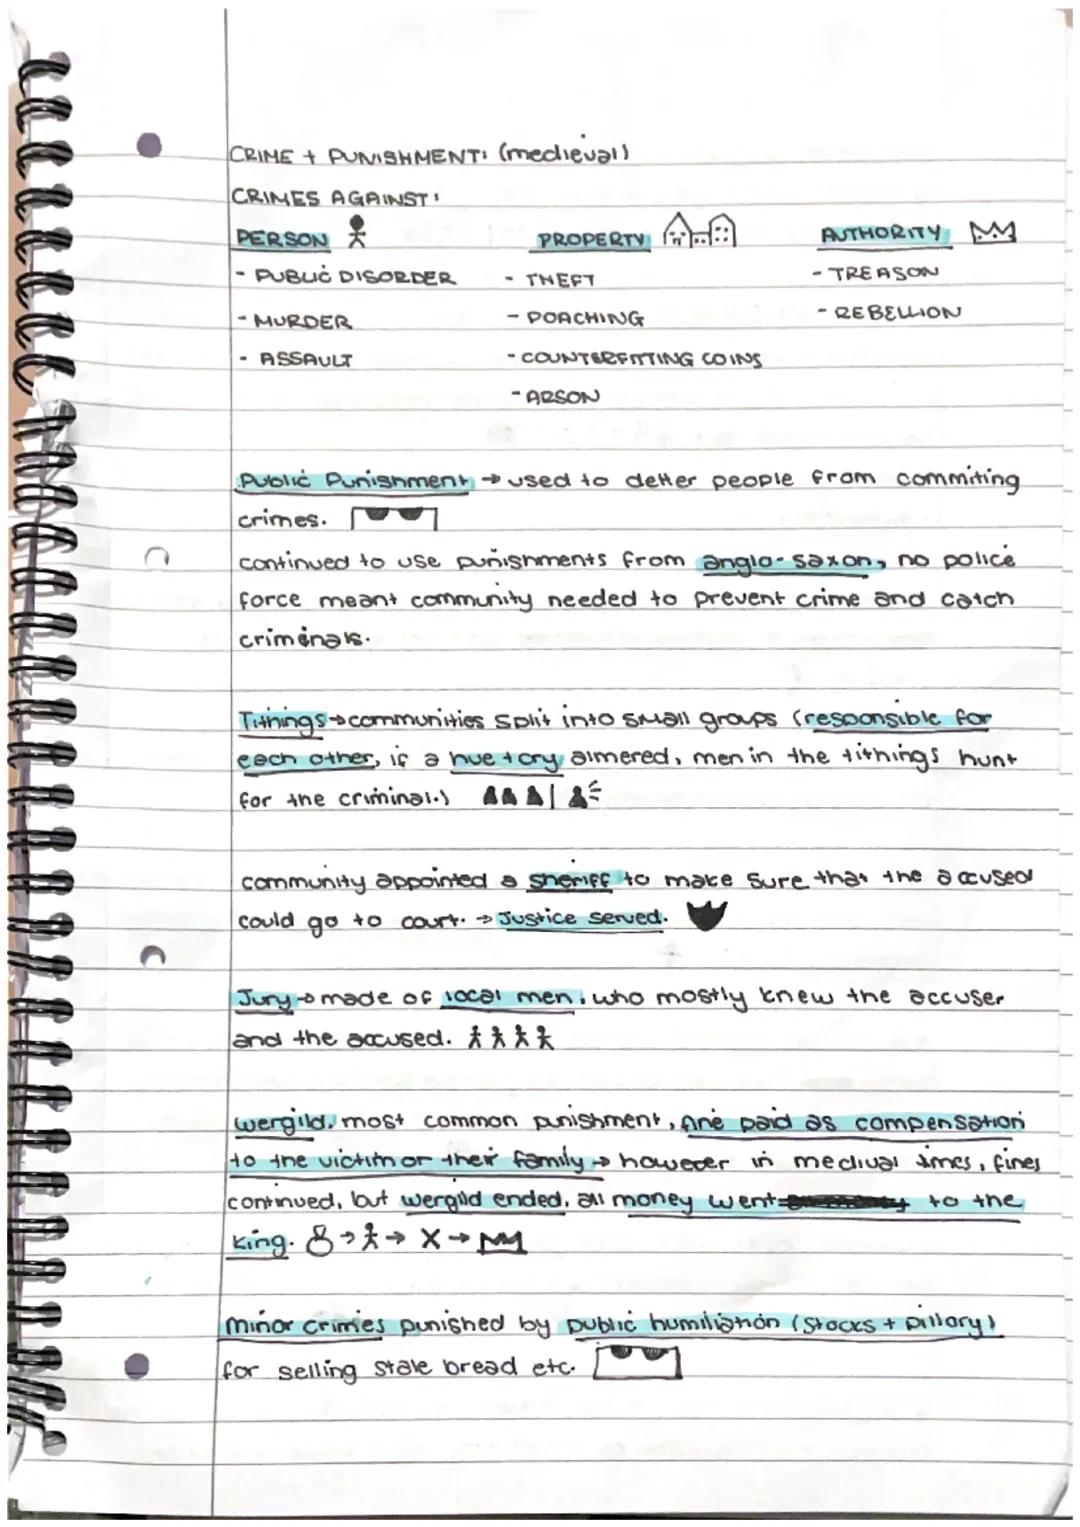 CRIME + PUNISHMENT: (medieval)
CRIMES AGAINST:
PERSON PROPERTY AUTHORITY
- PUBLIC DISORDER - THEFT - TREASON
- MURDER - POACHING - REBELLION
- ASSAULT - COUNTERFITTING COINS
- ARSON
Public Punishment → used to detter people from commiting
crimes.
continued to use punishments from anglo-saxon, no police
force meant community needed to prevent crime and catch
criminals.
Tithings → communities split into small groups (responsible for
each other, if a hue + cry almered, men in the tithings hunt
for the criminal.)
community appointed a sheriff to make sure that the accused
could go to court. → Justice served.
Jury → made of local men, who mostly knew the accuser
and the accused.
wergild, most common punishment, fine paid as compensation
to the victim or their family → however in medival times, fines
continued, but wergild ended, all money went to the
king. → → X →
minor crimes punished by public humiliation (stocks + pillory)
for selling stale bread etc.